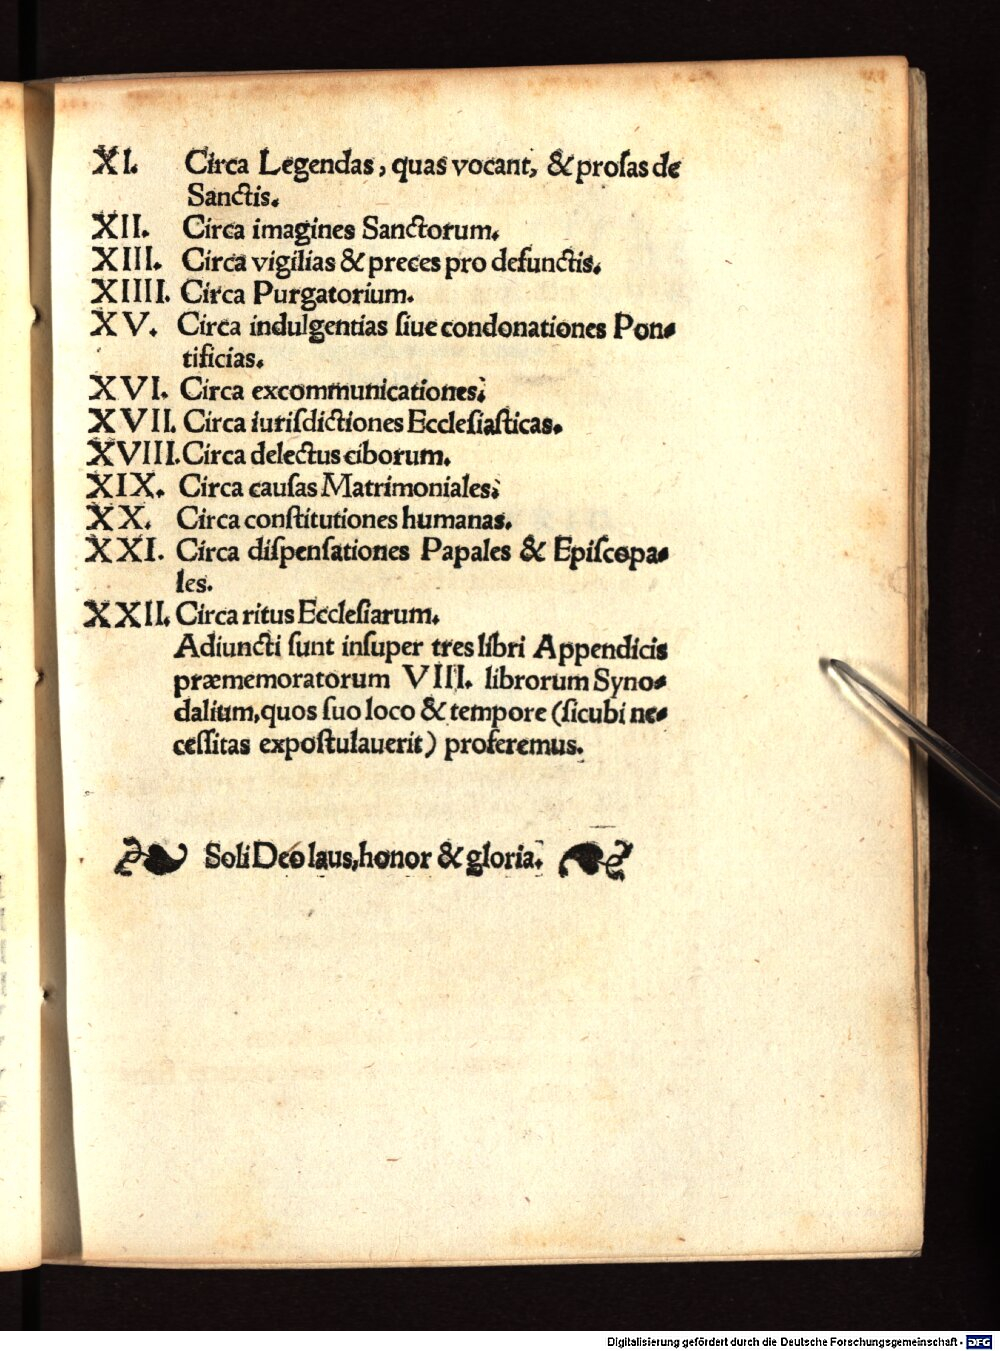 XI. Circa Legendas, quas vocant, & proſas de
Sanctis.
XII. Circa imagines Sanctorum.
XIII. Circa vigilias & preces pro defunctis.
XIIII. Circa Purgatorium.
XV. Circa indulgentias ſiue condonationes Pon-
tificias.
XVI. Circa excommunicationes.
XVII. Circa iuriſdictiones Eccleſiaſticas.
XVIII. Circa delectus ciborum.
XIX. Circa cauſas Matrimoniales.
XX. Circa conſtitutiones humanas.
XXI. Circa diſpenſationes Papales & Epiſcopa-
les.
XXII. Circa ritus Eccleſiarum.
Adiuncti ſunt inſuper tres libri Appendicis
præmemoratorum VIII. librorum Syno-
dalium, quos ſuo loco & tempore (ſicubi ne-
ceſſitas expoſtulauerit) proferemus.
Soli Deo laus, honor & gloria.
Digitalisierung gefördert durch die Deutsche Forschungsgemeinschaft - DFG